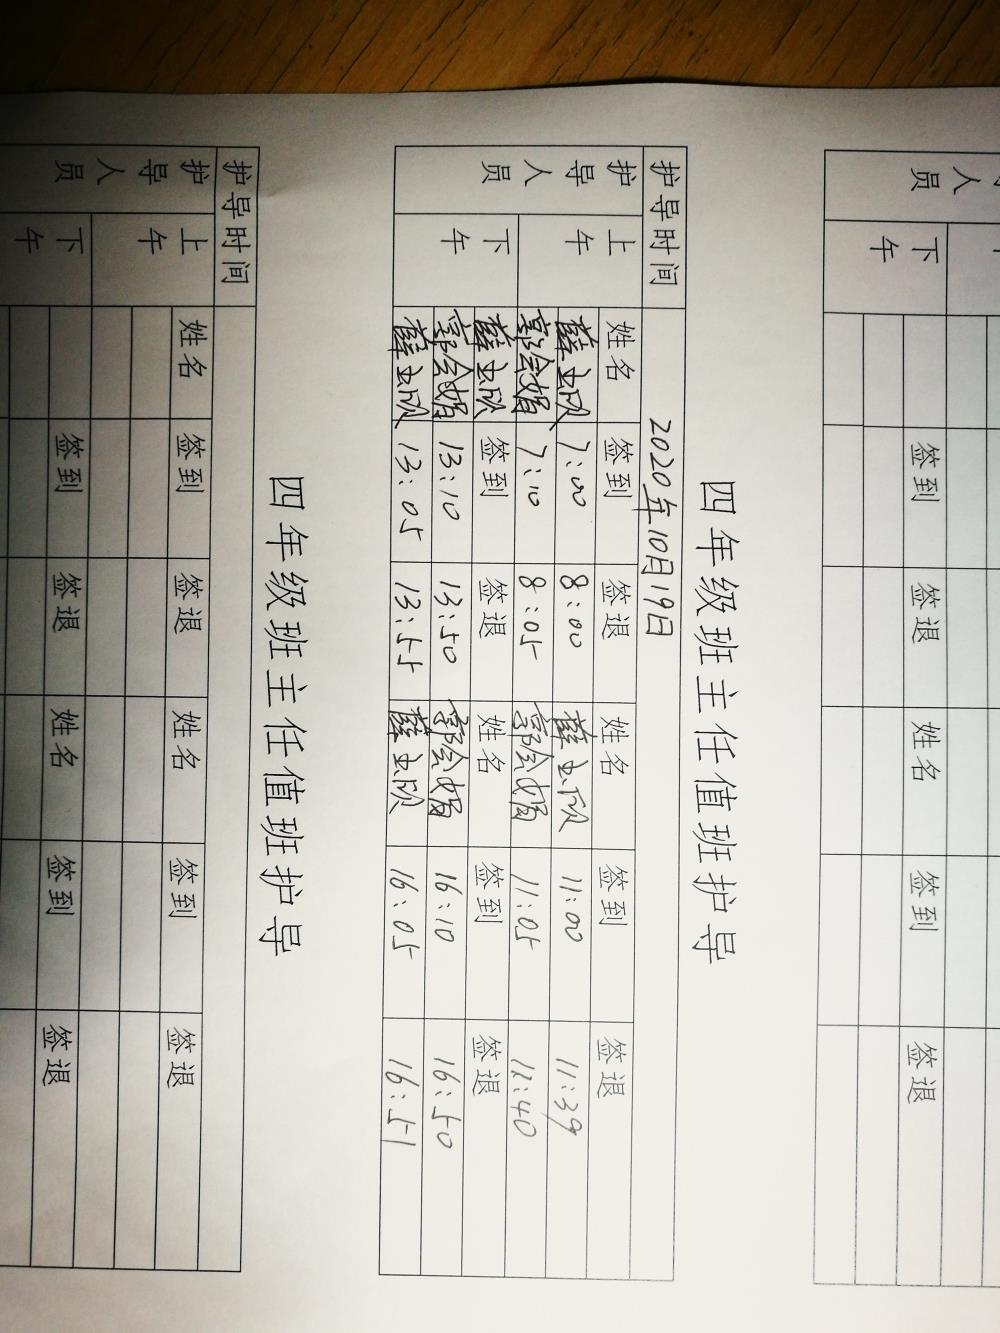 人员 下午 签到 签退 姓名 签到 签退
四年级班主任值班护导
护导时间 2020年10月19日
护导人员 上午 姓名 签到 签退 姓名 签到 签退
7:00 8:00 11:00 11:39
郭会娟 7:10 8:05 郭会娟 11:05 11:40
下午 签到 签退 姓名 签到 签退
郭会娟 13:10 13:50 郭会娟 16:10 16:50
13:05 13:55 16:05 16:51
四年级班主任值班护导
护导时间
护导人员 上午 姓名 签到 签退 姓名 签到 签退
下午 签到 签退 姓名 签到 签退